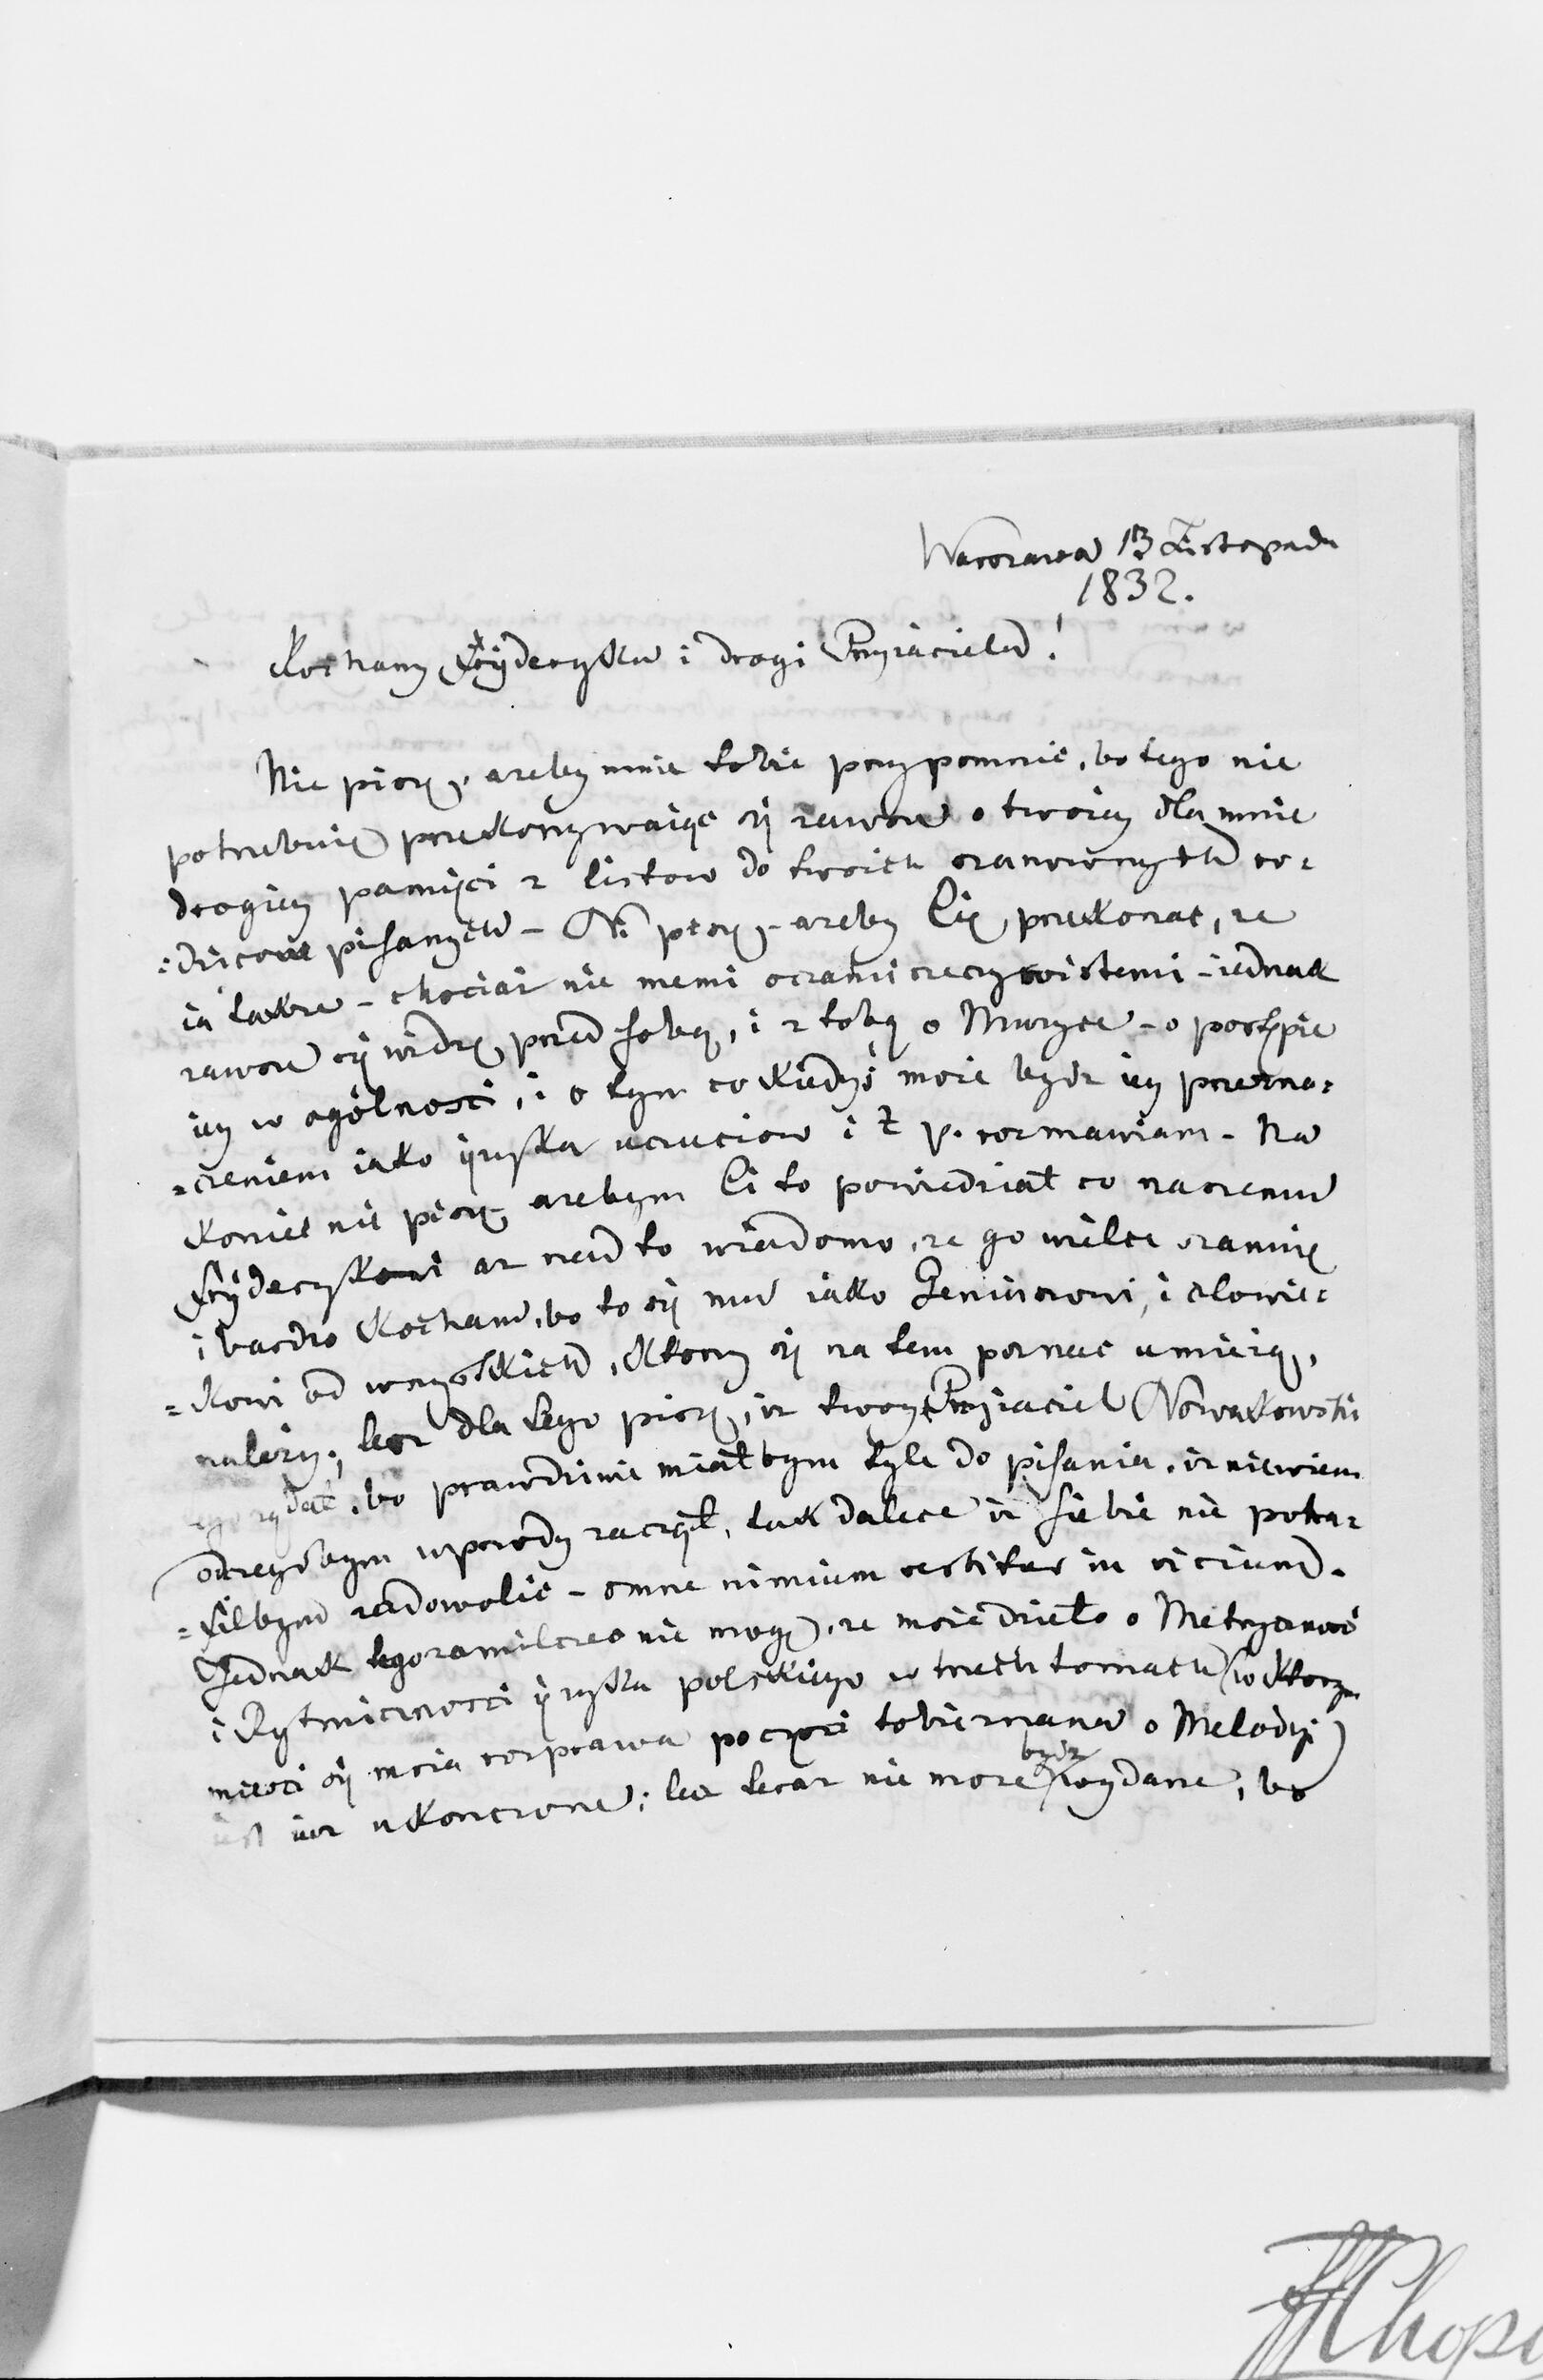 Warszawa 13 Listopada
1832.
Kochany Fryderyku i drogi Przyiacielu!
Nie piszę, ażeby mnie tobie przypomnić, bo tego nie
potrzebuię przekonywaiąc się zawsze o twoiey dla mnie
drogiey pamięci z listow do twoich szanownych ro=
=dzicow pisanych – Nie piszę, – ażeby Cię przekonać, że
ia także – chociaż nie memi oczami rzeczywistemi – iednak
zawsze cię widzę przed sobą, i z tobą o Muzyce – o postępie
iey w ogólnosci, i o tym co kiedyś może będzie iey przezna=
=czeniem iako ięzyka uczuciow i t. p. rozmawiam – Na
koniec nie piszę ażebym Ci to powiedział co naszemu
Fryderykowi aż nad to wiadomo, że go wielce szanuię
i bardzo kocham, bo to się mu iako Geniuszowi, i człowie=
=kowi od wszystkich, ktorzy się na tem poznać umieią,
należy; lecz dla tego piszę, iż twoy Przyiaciel Nowakowski
tego żądał, bo prawdziwie miałbym tyle do pisania, iż niewiem
od czegobym wprzody zaczął, tak dalece iż siebie nie potra=
=filbym zadowolić – omne nimium vertitur in vicium.
Jednak tego zamilczeć nie mogę, że moie dzieło o Metryczności
i Rytmiczności ięzyka polskiego w trzech tomach (w ktorym
mieści się moia rozprawa po części tobie znana o Melodyi)
iest iuż ukończone; lecz teraz nie może bydź wydane, bo
Chop